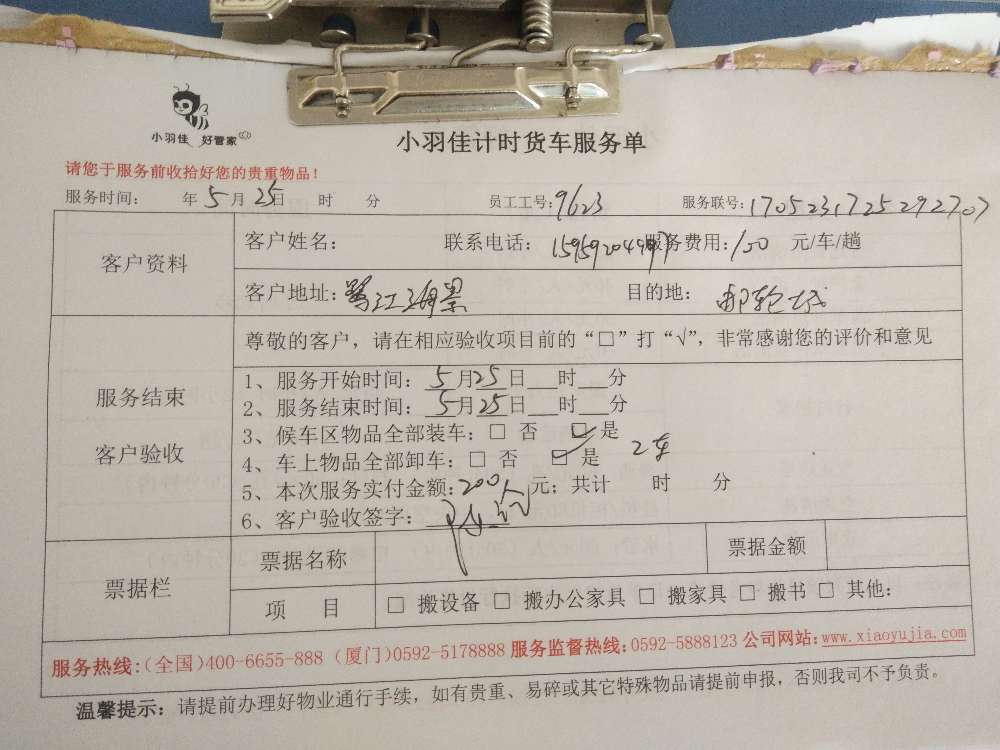 小羽佳 好管家
小羽佳计时货车服务单
请您于服务前收拾好您的贵重物品！
服务时间： 年 5 月 25 日 时 分 员工工号：9623 服务联号：1705231725292707
客户资料
客户姓名： 联系电话： 服务费用：100 元/车/趟
客户地址：鹭江海景 目的地：邮轮城
尊敬的客户，请在相应验收项目前的“□”打“√”，非常感谢您的评价和意见
服务结束
客户验收
1、服务开始时间：5月25日___时___分
2、服务结束时间：5月25日___时___分
3、候车区物品全部装车：□ 否 ☑ 是
4、车上物品全部卸车：□ 否 ☑ 是 2车
5、本次服务实付金额：200 元；共计 时 分
6、客户验收签字：
票据栏
票据名称 票据金额
项 目 □ 搬设备 □ 搬办公家具 □ 搬家具 □ 搬书 □ 其他：
服务热线：（全国）400-6655-888（厦门）0592-5178888 服务监督热线：0592-5888123 公司网站：www.xiaoyujia.com
温馨提示：请提前办理好物业通行手续，如有贵重、易碎或其它特殊物品请提前申报，否则我司不予负责。